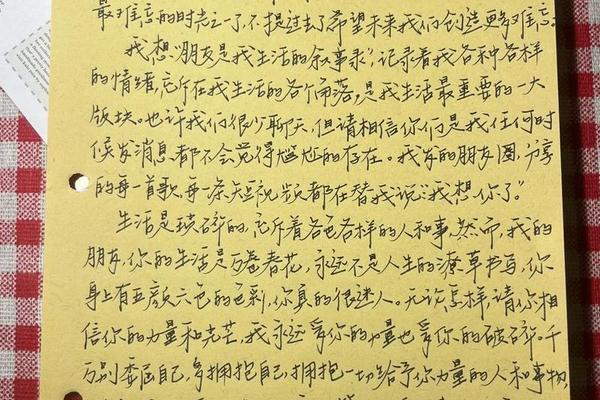 最难忘的时光之一了,不提过去了希望未来我们创造更多难忘。
我想"朋友是我生活的叙事录",记录着我各种各样
的情绪,充斥在我生活的各个角落,是我生活最重要的一大
版块。也许我们很少聊天,但请相信你们是我任何时
候发消息都不会觉得尴尬的存在。我发的朋友圈、分享
的每一首歌、每一条短视频都在替我说"我想你了"。
生活是琐碎的,充斥着各色各样的人和事,然而,我的
朋友,你的生活是万卷春花,永远不是人生的潦草书写,你
身上有五颜六色的色彩,你真的很迷人。无论怎样,请你相
信你的力量和光芒,我永远爱你的力量也爱你的破碎。千
万别委屈自己,多拥抱自己,拥抱一切给予你力量的人和事物,